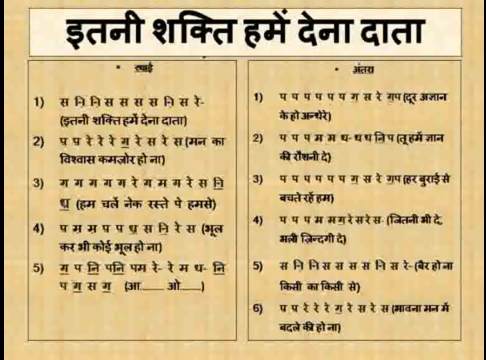 इतनी शक्ति हमें देना दाता
• स्थाई
1) स नि नि स स स स नि स रे-
(इतनी शक्ति हमें देना दाता)
2) प प़ रे रे रे ग॒ रे स रे स (मन का
विश्वास कमज़ोर हो ना)
3) ग ग ग ग ग रे ग म ग रे स नि॒
ध॒ (हम चलें नेक रस्ते पे हमसे)
4) प म म प प ध॒ स नि॒ रे स (भूल
कर भी कोई भूल हो ना)
5) ग॒ प नि॒ पनि॒ पम रे- रे म ध- नि॒
प ग॒ स ग॒ (आ___ ओ___)
• अंतरा
1) प प प प प प ग॒ स रे ग॒प (दूर अज्ञान
के हो अन्धेरे)
2) प प प म म ध- ध ध नि॒प (तू हमें ज्ञान
की रौशनी दे)
3) प प प प प प ग॒ स रे ग॒प (हर बुराई से
बचते रहें हम)
4) प प प म मग॒ रेसरेस- (जितनी भी दे,
भली ज़िन्दगी दे)
5) स नि नि स स स स नि स रे- (बैर हो ना
किसी का किसी से)
6) प प रे रे रे ग॒ रे स रे स (भावना मन में
बदले की हो ना)